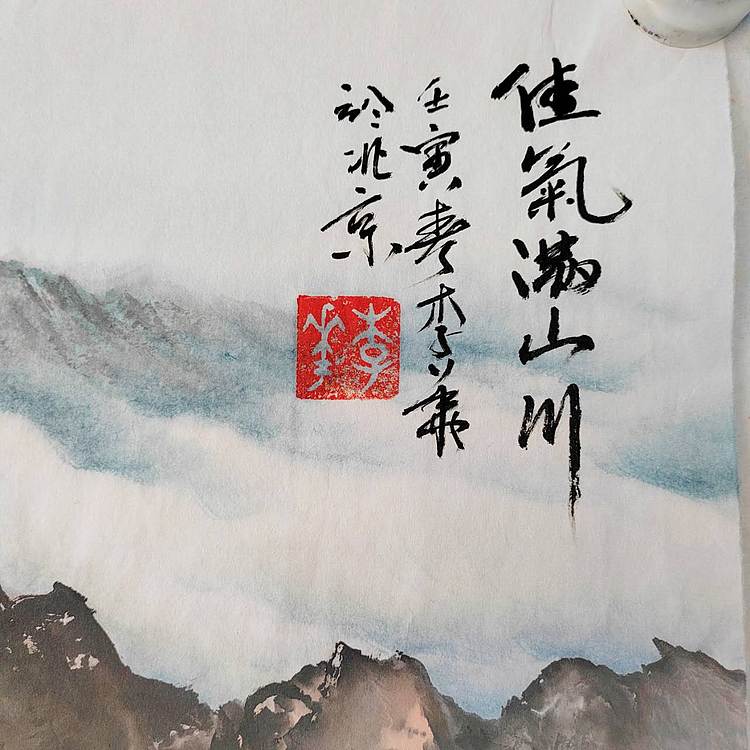 佳氣滿山川
壬寅春李華
於北京
李華